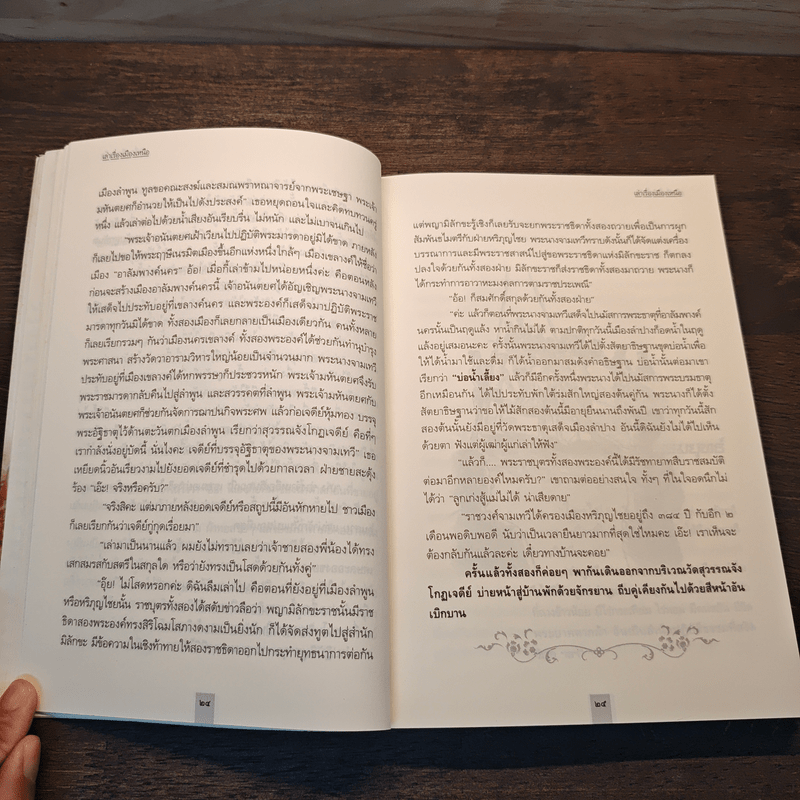 เล่าเรื่องเมืองเหนือ
เมืองลำพูน ทูลขอคณะสงฆ์และสมณพราหณาจารย์จากพระเชษฐา พระเจ้า
มหันตยศก็อำนวยให้เป็นไปดังประสงค์" เธอหยุดถอนใจและคิดทบทวนครู่
หนึ่ง แล้วเล่าต่อไปด้วยน้ำเสียงอันเรียบรื่น ไม่หนัก และไม่เบาจนเกินไป
"พระเจ้าอนันตยศเฝ้าเวียนไปปฏิบัติพระมารดาอยู่มิได้ขาด ภายหลัง
ก็เลยไปขอให้พระฤาษีเนรมิตเมืองขึ้นอีกแห่งหนึ่งใกล้ๆ เมืองเขลางค์ให้ชื่อว่า
เมือง "อาลัมพางค์นคร" อ้อ! เมื่อกี้เล่าข้ามไปหน่อยหนึ่งค่ะ คือตอนหลัง
ก่อนจะสร้างเมืองอาลัมพางค์นครนี้ เจ้าอนันตยศได้อัญเชิญพระนางจามเทวี
ให้เสด็จไปประทับอยู่ที่เขลางค์นคร และพระองค์ก็เสด็จมาปฏิบัติพระราช
มารดาทุกวันมิได้ขาด ทั้งสองเมืองก็เลยกลายเป็นเมืองเดียวกัน คนทั้งหลาย
ก็เลยเรียกรวมๆ กันว่าเมืองนครเขลางค์ ทั้งสองพระองค์ได้ช่วยกันทำนุบำรุง
พระศาสนา สร้างวัดวาอารามวิหารใหญ่น้อยเป็นจำนวนมาก พระนางจามเทวี
ประทับอยู่ที่เมืองเขลางค์ได้หกพรรษาก็ประชวรหนัก พระเจ้ามหันตยศจึงรับ
พระราชมารดากลับคืนไปสู่ลำพูน และสวรรคตที่ลำพูน พระเจ้ามหันตยศกับ
พระเจ้าอนันตยศก็ช่วยกันจัดการฌาปนกิจพระศพ แล้วก่อเจดีย์หุ้มทอง บรรจุ
พระอัฐิธาตุไว้ด้านตะวันตกเมืองลำพูน เรียกว่าสุวรรณจังโกฏเจดีย์ คือที่ๆ
เรากำลังนั่งอยู่บัดนี้ นั่นไงคะ เจดีย์ที่บรรจุอัฐิธาตุของพระนางจามเทวี" เธอ
เหยียดนิ้วอันเรียวงามไปยังยอดเจดีย์ที่ชำรุดไปด้วยกาลเวลา ฝ่ายชายสะดุ้ง
ร้อง "เอ๊ะ! จริงหรือครับ?"
"จริงสิคะ แต่มาภายหลังยอดเจดีย์หรือสถูปนี้มีอันหักหายไป ชาวเมือง
ก็เลยเรียกกันว่าเจดีย์กู่กุดเรื่อยมา"
"เล่ามาเป็นนานแล้ว ผมยังไม่ทราบเลยว่าเจ้าชายสองพี่น้องได้ทรง
เสกสมรสกับสตรีในสกุลใด หรือว่ายังทรงเป็นโสดด้วยกันทั้งคู่"
"อุ๊ย! ไม่โสดหรอกค่ะ ดิฉันลืมเล่าไป คือตอนที่ยังอยู่ที่เมืองลำพูน
หรือหริภุญไชยนั้น ราชบุตรทั้งสองได้สดับข่าวลือว่า พญามิลักขะราชนั้นมีราช
ธิดาสองพระองค์ทรงสิริโฉมโสภางดงามเป็นยิ่งนัก ก็ได้จัดส่งทูตไปสู่สำนัก
มิลักขะ มีข้อความในเชิงท้าทายให้สองราชธิดาออกไปกระทำยุทธนาการต่อกัน
๒๔
เล่าเรื่องเมืองเหนือ
แต่พญามิลักขะรู้เชิงก็เลยรับจะยกพระราชธิดาทั้งสองถวายเพื่อเป็นการผูก
สัมพันธไมตรีกับฝ่ายหริภุญไชย พระนางจามเทวีทราบดังนั้นก็ได้จัดแต่งเครื่อง
บรรณาการและมีพระราชสาสน์ไปสู่ขอพระราชธิดาแห่งมิลักขะราช ก็ตกลง
ปลงใจด้วยกันทั้งสองฝ่าย มิลักขะราชก็ส่งราชธิดาทั้งสองมาถวาย พระนางก็
ได้กระทำการอาวาหะมงคลการตามราชประเพณี"
"อ้อ! ก็สมศักดิ์สกุลด้วยกันทั้งสองฝ่าย"
"ค่ะ แล้วก็ตอนที่พระนางจามเทวีเสด็จไปนมัสการพระธาตุที่อาลัมพางค์
นครนั้นเป็นฤดูแล้ง หาน้ำกินไม่ได้ ตามปกติทุกวันนี้เมืองลำปางก็อดน้ำในฤดู
แล้งอยู่เสมอนะคะ ครั้งนั้นพระนางจามเทวีได้ไปตั้งสัตยาธิษฐานขุดบ่อน้ำเพื่อ
ให้ได้น้ำมาใช้และดื่ม ก็ได้น้ำออกมาสมดังคำอธิษฐาน บ่อน้ำนั้นต่อมาเขา
เรียกว่า "บ่อน้ำเลี้ยง" แล้วก็มีอีกครั้งหนึ่งพระนางได้ไปนมัสการพระบรมธาตุ
อีกเหมือนกัน ได้ไปประทับพักใต้ร่มสักใหญ่สองต้นคู่กัน พระนางก็ได้ตั้ง
สัตยาธิษฐานว่าขอให้ไม้สักสองต้นนี้มีอายุยืนนานถึงพันปี เขาว่าทุกวันนี้สัก
สองต้นนั้นยังมีอยู่ที่วัดพระธาตุเสด็จเมืองลำปาง อันนี้ดิฉันยังไม่ได้ไปเห็น
ด้วยตา ฟังแต่ผู้เฒ่าผู้แก่เล่าให้ฟัง"
"แล้วก็.... พระราชบุตรทั้งสองพระองค์นี้ได้มีรัชทายาทสืบราชสมบัติ
ต่อมาอีกหลายองค์ไหมครับ?" เขาถามต่ออย่างสนใจ ทั้งๆ ที่ในใจอดนึกไม่
ได้ว่า "ลูกเก่งสู้แม่ไม่ได้ น่าเสียดาย"
"ราชวงศ์จามเทวีได้ครองเมืองหริภุญไชยอยู่ถึง ๓๘๔ ปี กับอีก ๒
เดือนพอดิบพอดี นับว่าเป็นเวลายืนยาวมากที่สุดใช่ไหมคะ เอ๊ะ! เราเห็นจะ
ต้องกลับกันแล้วละค่ะ เดี๋ยวทางบ้านจะคอย"
ครั้นแล้วทั้งสองก็ค่อยๆ พากันเดินออกจากบริเวณวัดสุวรรณจัง
โกฏเจดีย์ บ่ายหน้าสู่บ้านพักด้วยจักรยาน ถีบคู่เคียงกันไปด้วยสีหน้าอัน
เบิกบาน
๒๕